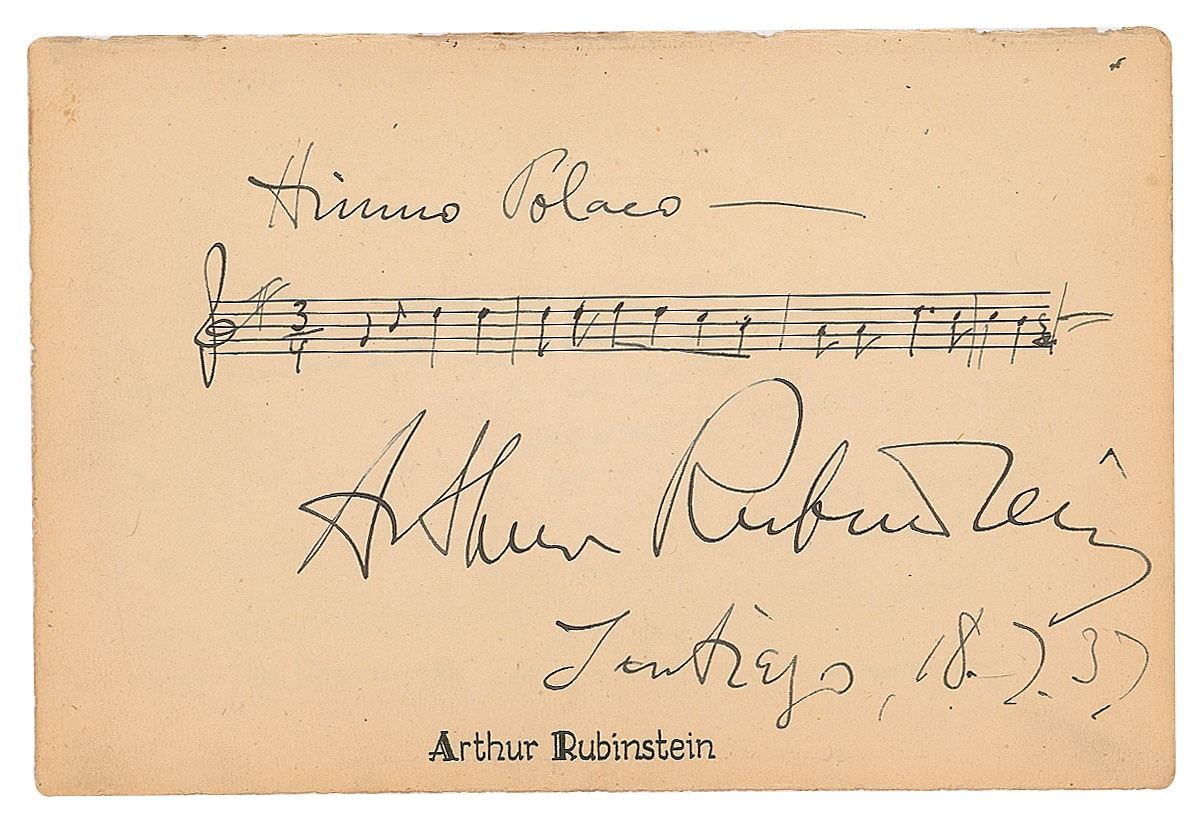 Himno Polaco —
3
4
Arthur Rubinstein
Santiago, 18.7.37
Arthur Rubinstein